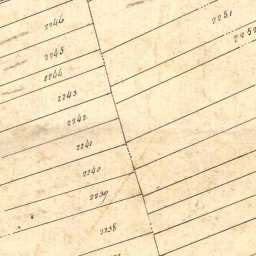 2246
2251
2252
2245
2244
2243
2242
2241
2240
2239
2238